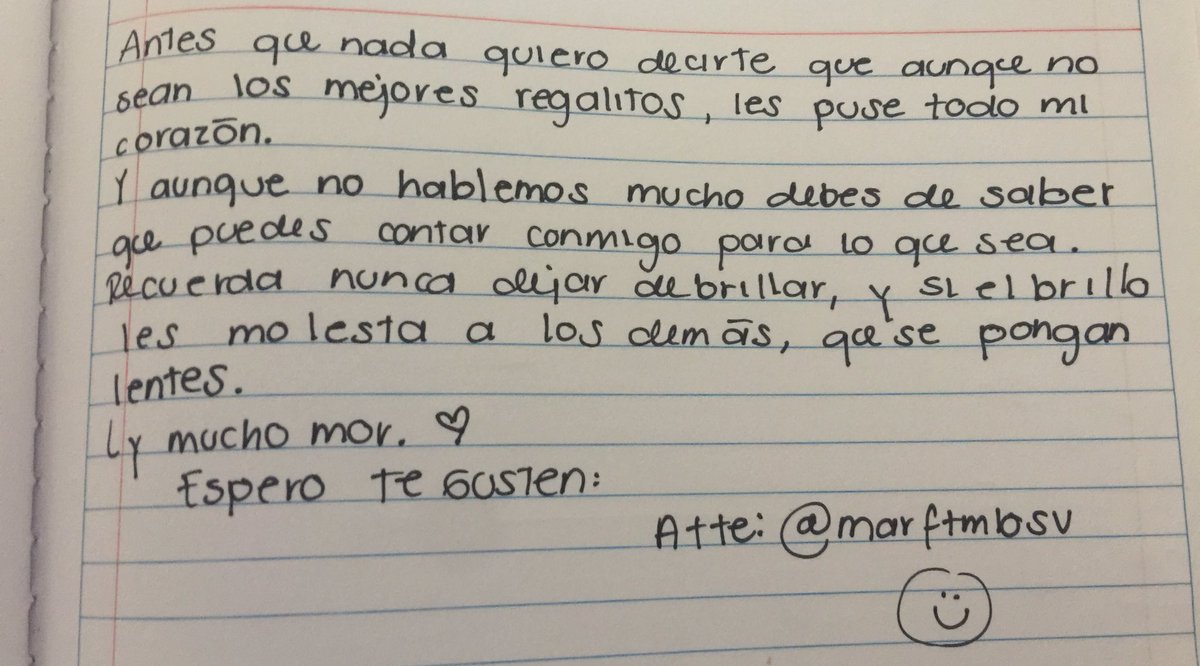 Antes que nada quiero decirte que aunque no
sean los mejores regalitos, les puse todo mi
corazón.
Y aunque no hablemos mucho debes de saber
que puedes contar conmigo para lo que sea.
Recuerda nunca dejar de brillar, y si el brillo
les molesta a los demás, que se pongan
lentes.
Ly mucho mor. ♡
Espero te gusten:
Atte: @marftmbsv